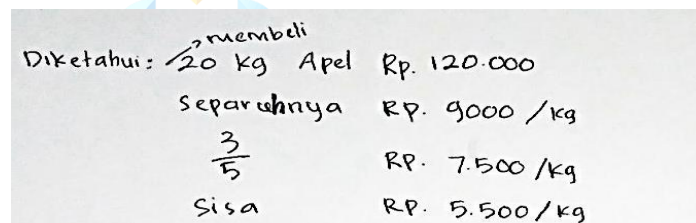 membeli
Diketahui : 20 kg Apel Rp. 120.000
Separuhnya RP. 9000 /kg
3/5 RP. 7.500 /kg
Sisa RP. 5.500 / kg